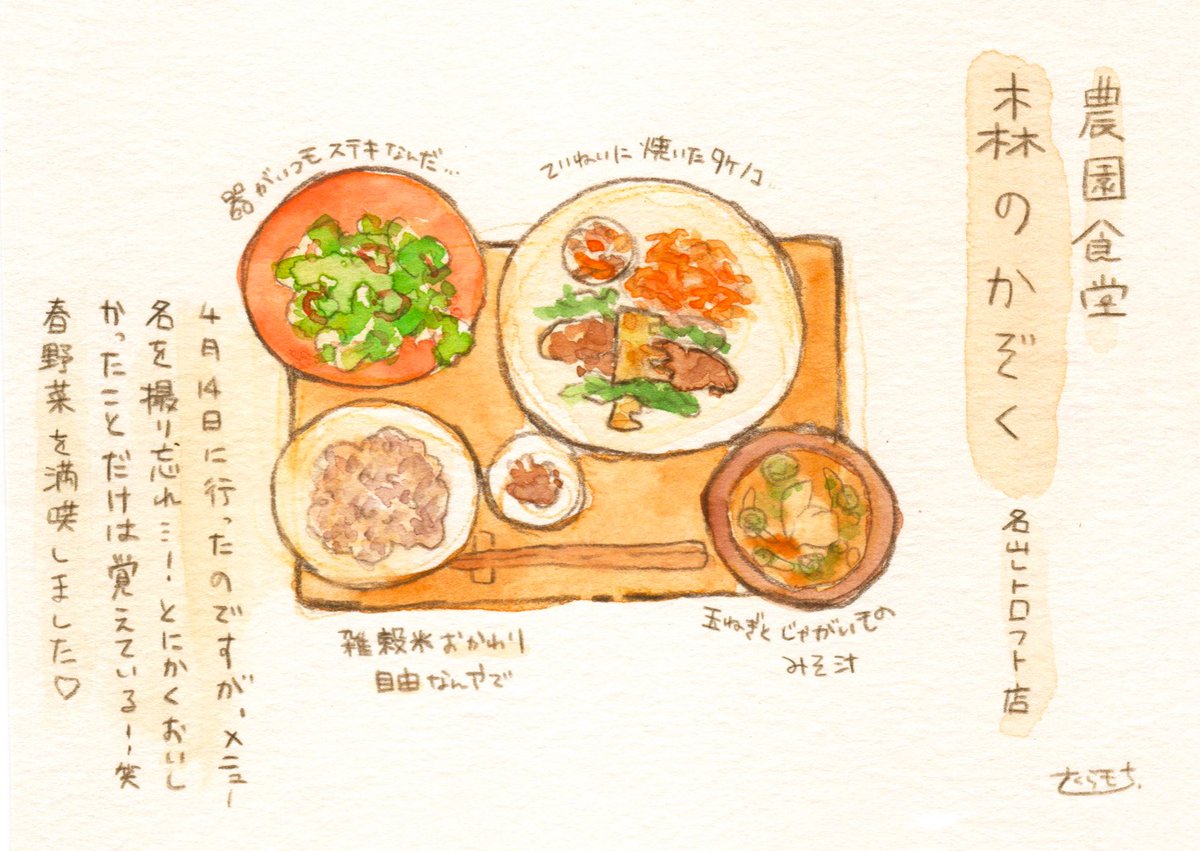 農園食堂
森のかぞく
名山トロフト店
器がいつもステキなんだ…
ていねいに焼いたタケノコ…
雑穀米おかわり
自由なんやで
玉ねぎとじゃがいもの
みそ汁
4月14日に行ったのですが、メニュー
名を撮り忘れ…！とにかくおいし
かったことだけは覚えている！！笑
春野菜を満喫しました♡
さくらもち.